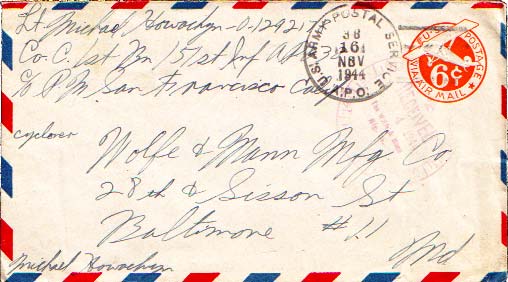 Lt. Michael Howachyn - O-12921
Co. C. 1st Bn 151st Inf A.P.O. 38
c/o P.M. San Francisco Calif
U.S. ARMY POSTAL SERVICE
38
16
NOV
1944
A.P.O.
U.S. POSTAGE
6¢
VIA AIR MAIL
RECEIVED
Wolfe & Mann Mfg Co.
28th & Sisson St
Baltimore #11
Md
Michael Howachyn